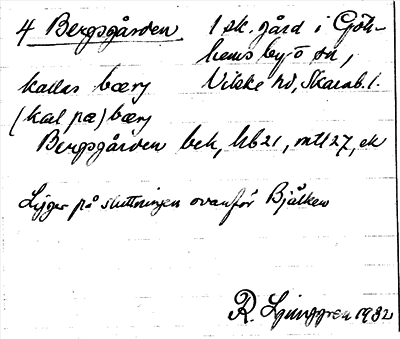 4 Bergsgården 1 sk. gård i Göt-
hems by o sn,
kallas bærj Vilske hd, Skarab. l.
(kal pæ) bærj
Bergsgården bek, hb 21, mtl 27, ek
Ligger på sluttningen ovanför Bjälken
R. Ljunggren 1932